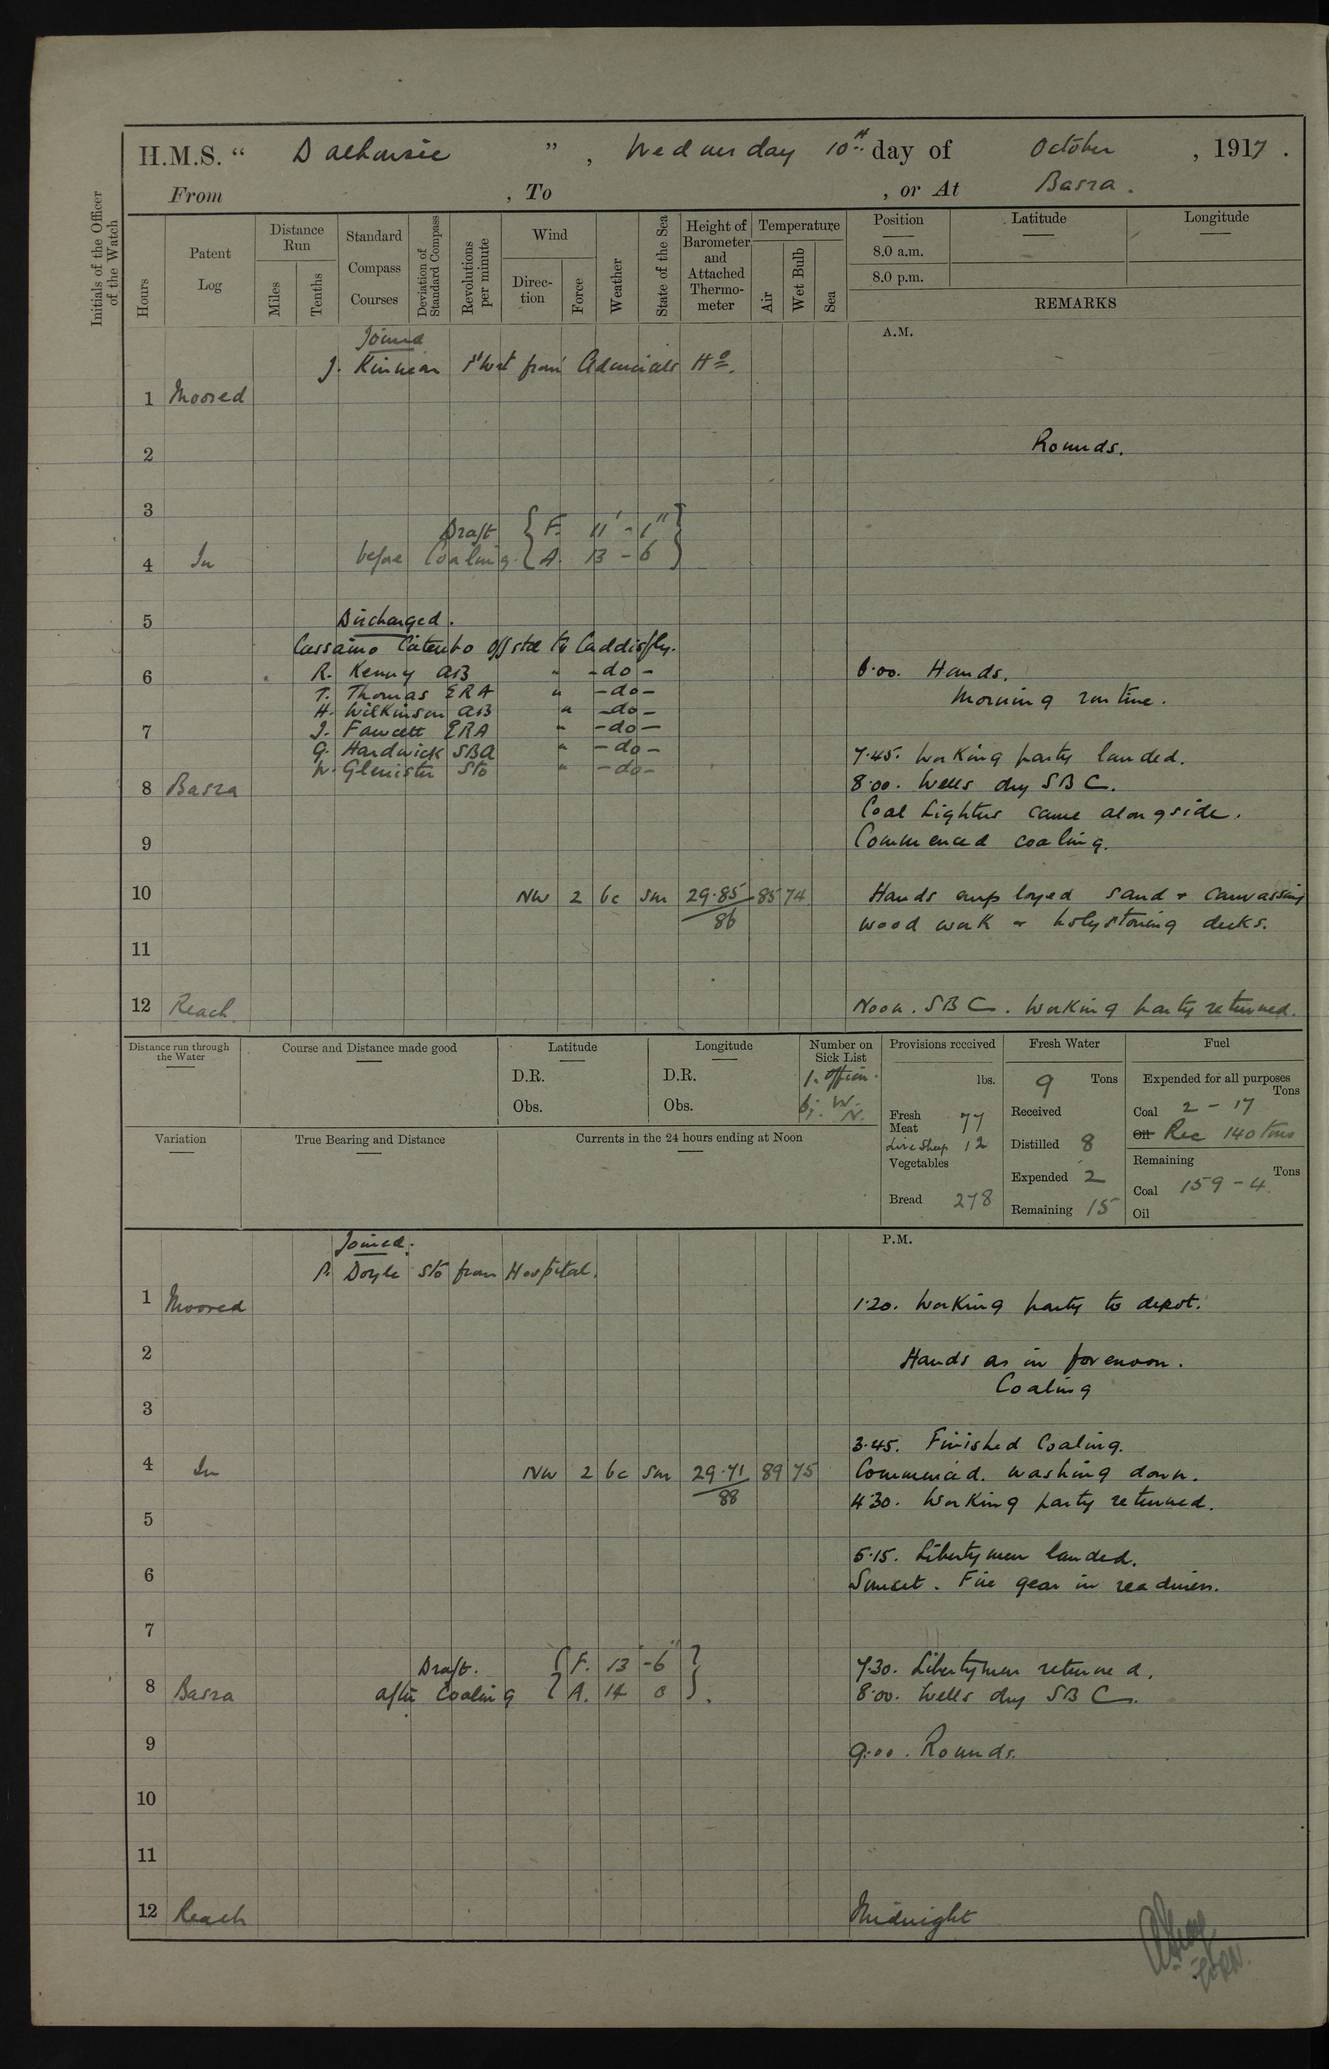 H.M.S. " Dalhousie ", Wednesday 10th day of October, 1917.
From , To , or At Basra.
Initials of the Officer of the Watch
Hours
Patent Log
Distance Run
Miles
Tenths
Standard Compass Courses
Deviation of Standard Compass
Revolutions per minute
Wind
Direction
Force
Weather
State of the Sea
Height of Barometer and Attached Thermometer
Temperature
Air
Wet Bulb
Sea
Position Latitude Longitude
8.0 a.m.
8.0 p.m.
REMARKS
A.M.
Joined
J. Kinnear from Admirals Ho.
1 Moored
2 Rounds.
3
Draft { F. 11' - 1" }
4 In before Coaling { A. 13 - 6 }
5 Discharged.
Cassaino to Caddisfly.
6 R. Kenny AB " - do - 6.00. Hands.
T. Thomas ERA " - do - Morning routine.
H. Wilkinson AB " - do -
7 J. Fawcett ERA " - do -
G. Hardwick SBA " - do - 7.45. Working party landed.
W. Glenister Sto " - do -
8 Basra 8.00. Wells dry SBC.
Coal Lighter came alongside.
9 Commenced coaling.
10 NW 2 bc sm 29.85 85 74 Hands employed sand & canvassing
86 wood work & holystoning decks.
11
12 Reach Noon. SBC. Working party returned.
Distance run through the Water
Course and Distance made good
Latitude
D.R.
Obs.
Longitude
D.R.
Obs.
Number on Sick List
1. Officer.
6.
Variation
True Bearing and Distance
Currents in the 24 hours ending at Noon
Provisions received
lbs.
Fresh Meat 77
Live Sheep 12
Vegetables
Bread 278
Fresh Water
9 Tons
Received
Distilled 8
Expended 2
Remaining 15
Fuel
Expended for all purposes
Tons
Coal 2 - 17
Oil Rec 140 tons
Remaining
Tons
Coal 159 - 4
Oil
P.M.
Joined.
P. Doyle Sto from Hospital.
1 Moored 1.20. Working party to depot.
2 Hands as in forenoon.
Coaling
3
3.45. Finished Coaling.
4 In NW 2 bc sm 29.71 89 75 Commenced washing down.
88 4.30. Working party returned.
5
5.15. Liberty men landed.
6 Sunset. Fire gear in readiness.
7
Draft. { F. 13' - 6" } 7.30. Libertymen returned.
8 Basra after Coaling { A. 14 0 }. 8.00. Wells dry SBC.
9 9.00. Rounds.
10
11
12 Reach Midnight